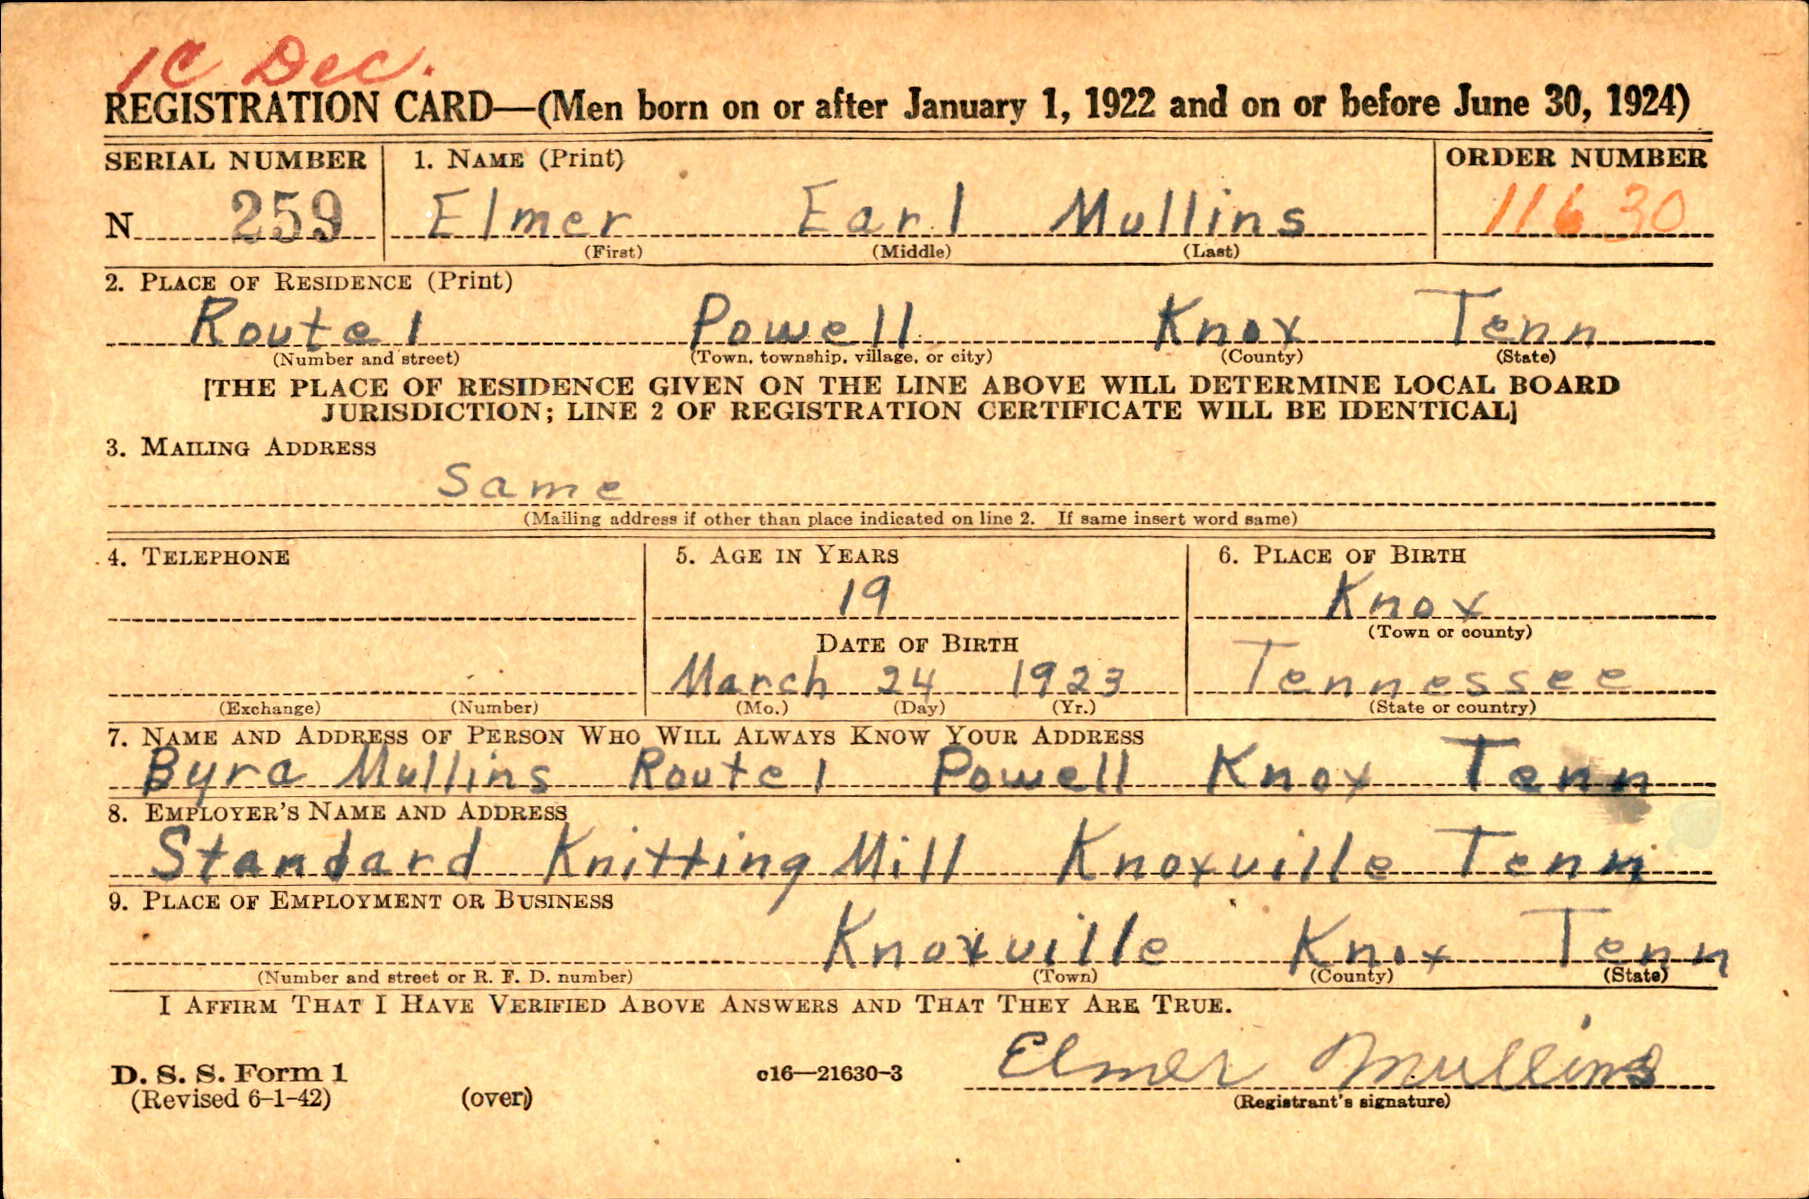 1C Dec.
REGISTRATION CARD—(Men born on or after January 1, 1922 and on or before June 30, 1924)
SERIAL NUMBER 1. NAME (Print) ORDER NUMBER
N 259 Elmer Earl Mullins 11630
(First) (Middle) (Last)
2. PLACE OF RESIDENCE (Print)
Route 1 Powell Knox Tenn
(Number and street) (Town, township, village, or city) (County) (State)
[THE PLACE OF RESIDENCE GIVEN ON THE LINE ABOVE WILL DETERMINE LOCAL BOARD
JURISDICTION; LINE 2 OF REGISTRATION CERTIFICATE WILL BE IDENTICAL]
3. MAILING ADDRESS
Same
(Mailing address if other than place indicated on line 2. If same insert word same)
4. TELEPHONE 5. AGE IN YEARS 6. PLACE OF BIRTH
19 Knox
(Town or county)
DATE OF BIRTH
March 24 1923 Tennessee
(Exchange) (Number) (Mo.) (Day) (Yr.) (State or country)
7. NAME AND ADDRESS OF PERSON WHO WILL ALWAYS KNOW YOUR ADDRESS
Byra Mullins Route 1 Powell Knox Tenn
8. EMPLOYER'S NAME AND ADDRESS
Standard Knitting Mill Knoxville Tenn
9. PLACE OF EMPLOYMENT OR BUSINESS
Knoxville Knox Tenn
(Number and street or R. F. D. number) (Town) (County) (State)
I AFFIRM THAT I HAVE VERIFIED ABOVE ANSWERS AND THAT THEY ARE TRUE.
Elmer Mullins
D. S. S. Form 1 c16—21630-3
(Revised 6-1-42) (over) (Registrant's signature)